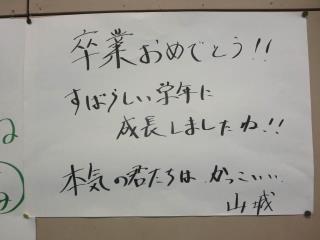 卒業おめでとう!!
すばらしい学年に
成長しましたね!!
本気の君たちは かっこいい…
山城